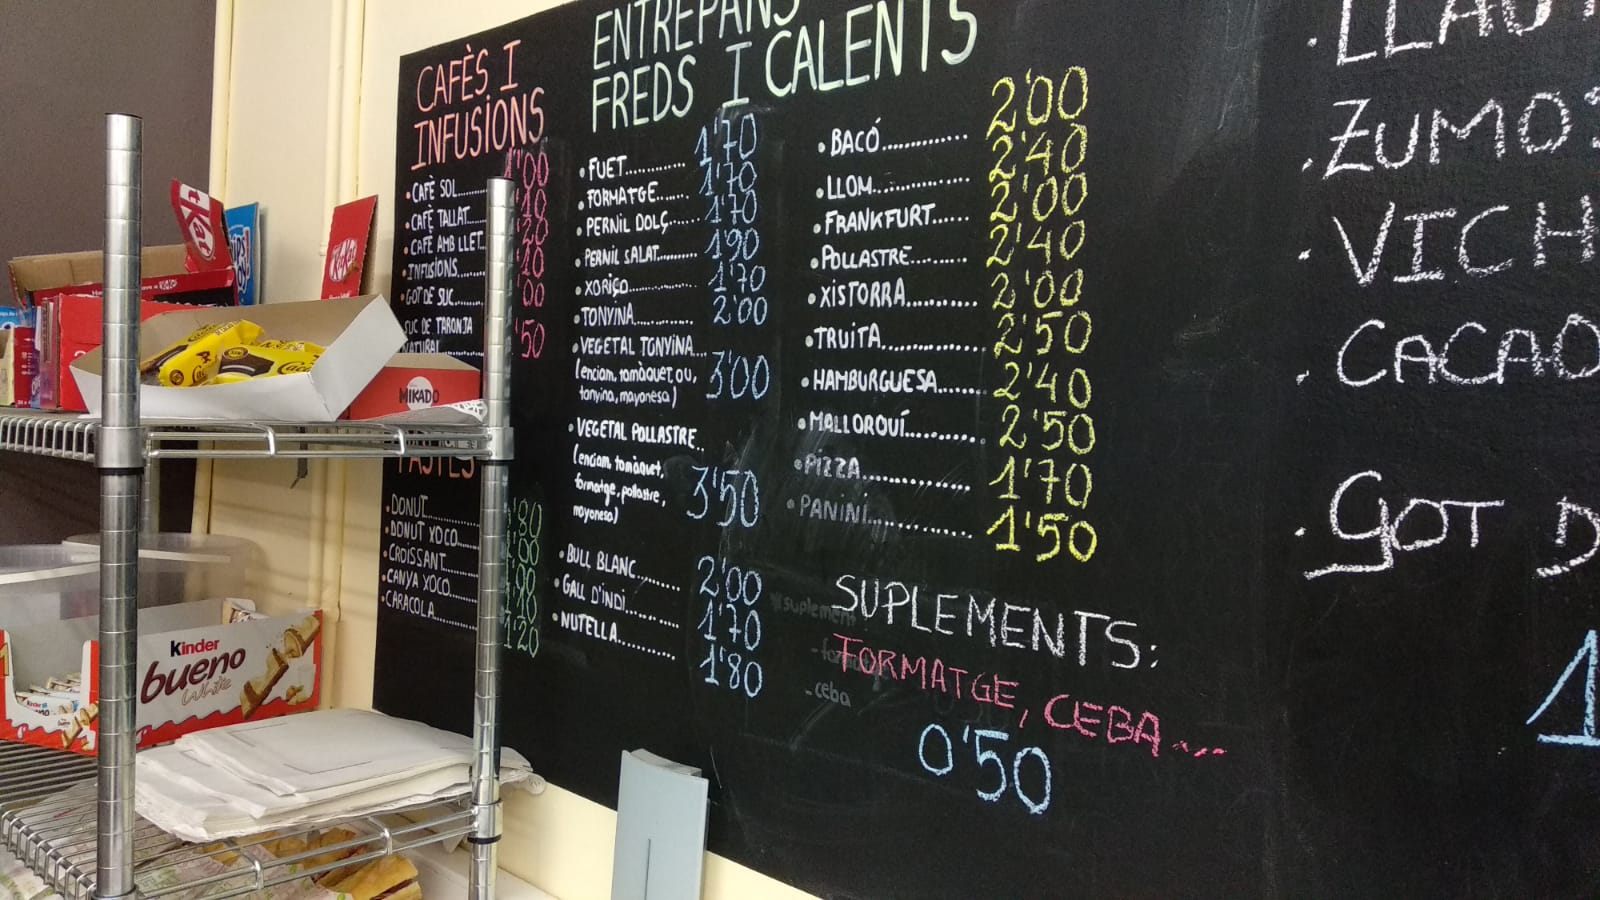 CAFÈS I
INFUSIONS
• CAFÈ SOL........ 1'00
• CAFÈ TALLAT...... '10
• CAFÈ AMB LLET... '20
• INFUSIONS...... '10
• GOT DE SUC..... '00
SUC DE TARONJA
NATURAL '50
PASTES
• DONUT........... '80
• DONUT XOCO..... '00
• CROISSANT......
• CANYA XOCO....
• CARACOLA....... 1'20
ENTREPANS
FREDS I CALENTS
• FUET........ 1'70
• FORMATGE....... 1'70
• PERNIL DOLÇ...... 1'70
• PERNIL SALAT........ 1'90
• XORIÇO........ 1'70
• TONYINA........... 2'00
• VEGETAL TONYINA...
(enciam, tomàquet, ou,
tonyina, mayonesa) 3'00
• VEGETAL POLLASTRE..
(enciam, tomàquet,
formatge, pollastre,
mayonesa) 3'50
• BULL BLANC........ 2'00
• GALL D'INDI....... 1'70
• NUTELLA.......... 1'80
• BACÓ............. 2'00
• LLOM............... 2'40
• FRANKFURT...... 2'00
• POLLASTRE......... 2'40
• XISTORRA........... 2'00
• TRUITA............. 2'50
• HAMBURGUESA....... 2'40
• MALLORQUÍ........... 2'50
• PIZZA............... 1'70
• PANINI.............. 1'50
suplement
SUPLEMENTS:
FORMATGE, CEBA...
- ceba
0'50
• ZUMO
• VICH
• CACAO
• GOT D
1
KitKat
KitKat
MIKADO
Kinder
bueno
White